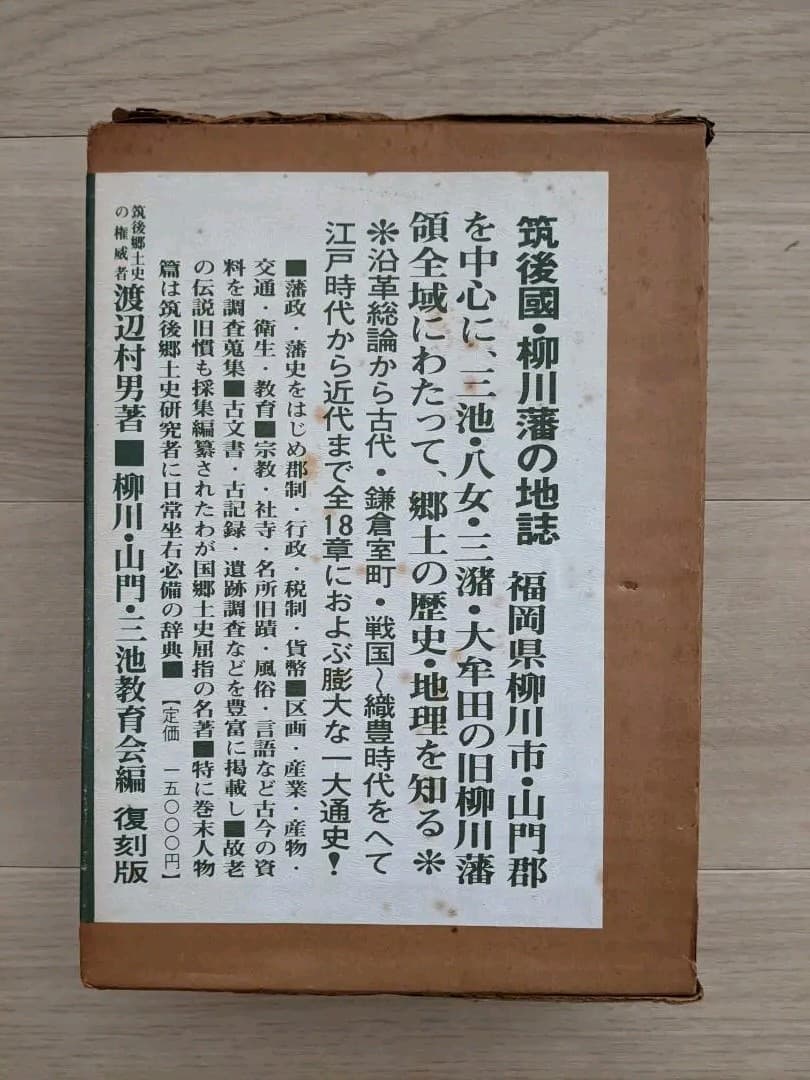 筑後國・柳川藩の地誌　福岡県柳川市・山門郡
を中心に、三池・八女・三潴・大牟田の旧柳川藩
領全域にわたって、郷土の歴史・地理を知る＊
＊沿革総論から古代・鎌倉室町・戦国〜織豊時代をへて
江戸時代から近代まで全18章におよぶ膨大な一大通史！
■藩政・藩史をはじめ郡制・行政・税制・貨幣■区画・産業・産物・
交通・衛生・教育■宗教・社寺・名所旧蹟・風俗・言語など古今の資
料を調査蒐集■古文書・古記録・遺跡調査などを豊富に掲載し■故老
の伝説旧慣も採集編纂されたわが国郷土史屈指の名著■特に巻末人物
篇は筑後郷土史研究者に日常坐右必備の辞典■【定価　一五〇〇〇円】
筑後郷土史
の権威者
渡辺村男著■柳川・山門・三池教育会編　復刻版